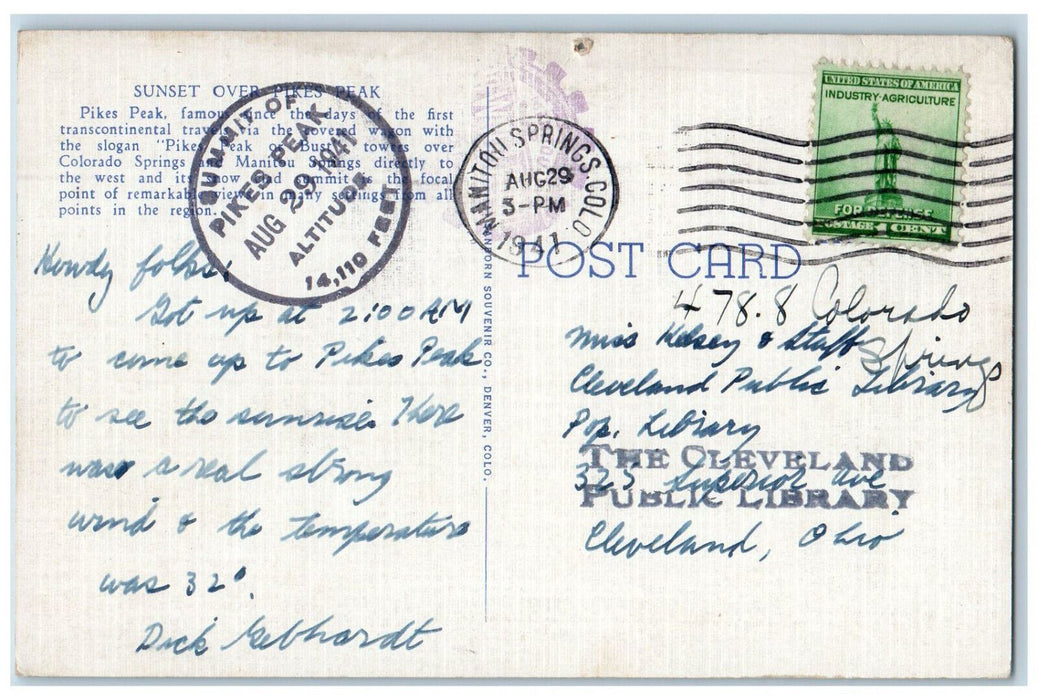 SUNSET OVER PIKES PEAK
Pikes Peak, famous since the days of the first
transcontinental travel via the covered wagon with
the slogan "Pikes Peak or Bust" towers over
Colorado Springs and Manitou Springs directly to
the west and its snow clad summit is the focal
point of remarkable views in many settings from all
points in the region.
SUMMIT OF
PIKES PEAK
AUG 29 1941
ALTITUDE
14,110 FEET
Howdy folks:
Got up at 2:00 AM
to come up to Pikes Peak
to see the sunrise. There
was a real strong
wind & the temperature
was 32°.
Dick Gebhardt
SANBORN SOUVENIR CO., DENVER, COLO.
MANITOU SPRINGS. COLO
AUG 29
3-PM
1941
UNITED STATES OF AMERICA
INDUSTRY·AGRICULTURE
FOR DEFENSE
POSTAGE 1 CENT
POST CARD
478.8 Colorado
Springs
Miss Kelsey & Staff
Cleveland Public Library
Pop. Library
325 Superior Ave
Cleveland, Ohio
THE CLEVELAND
PUBLIC LIBRARY